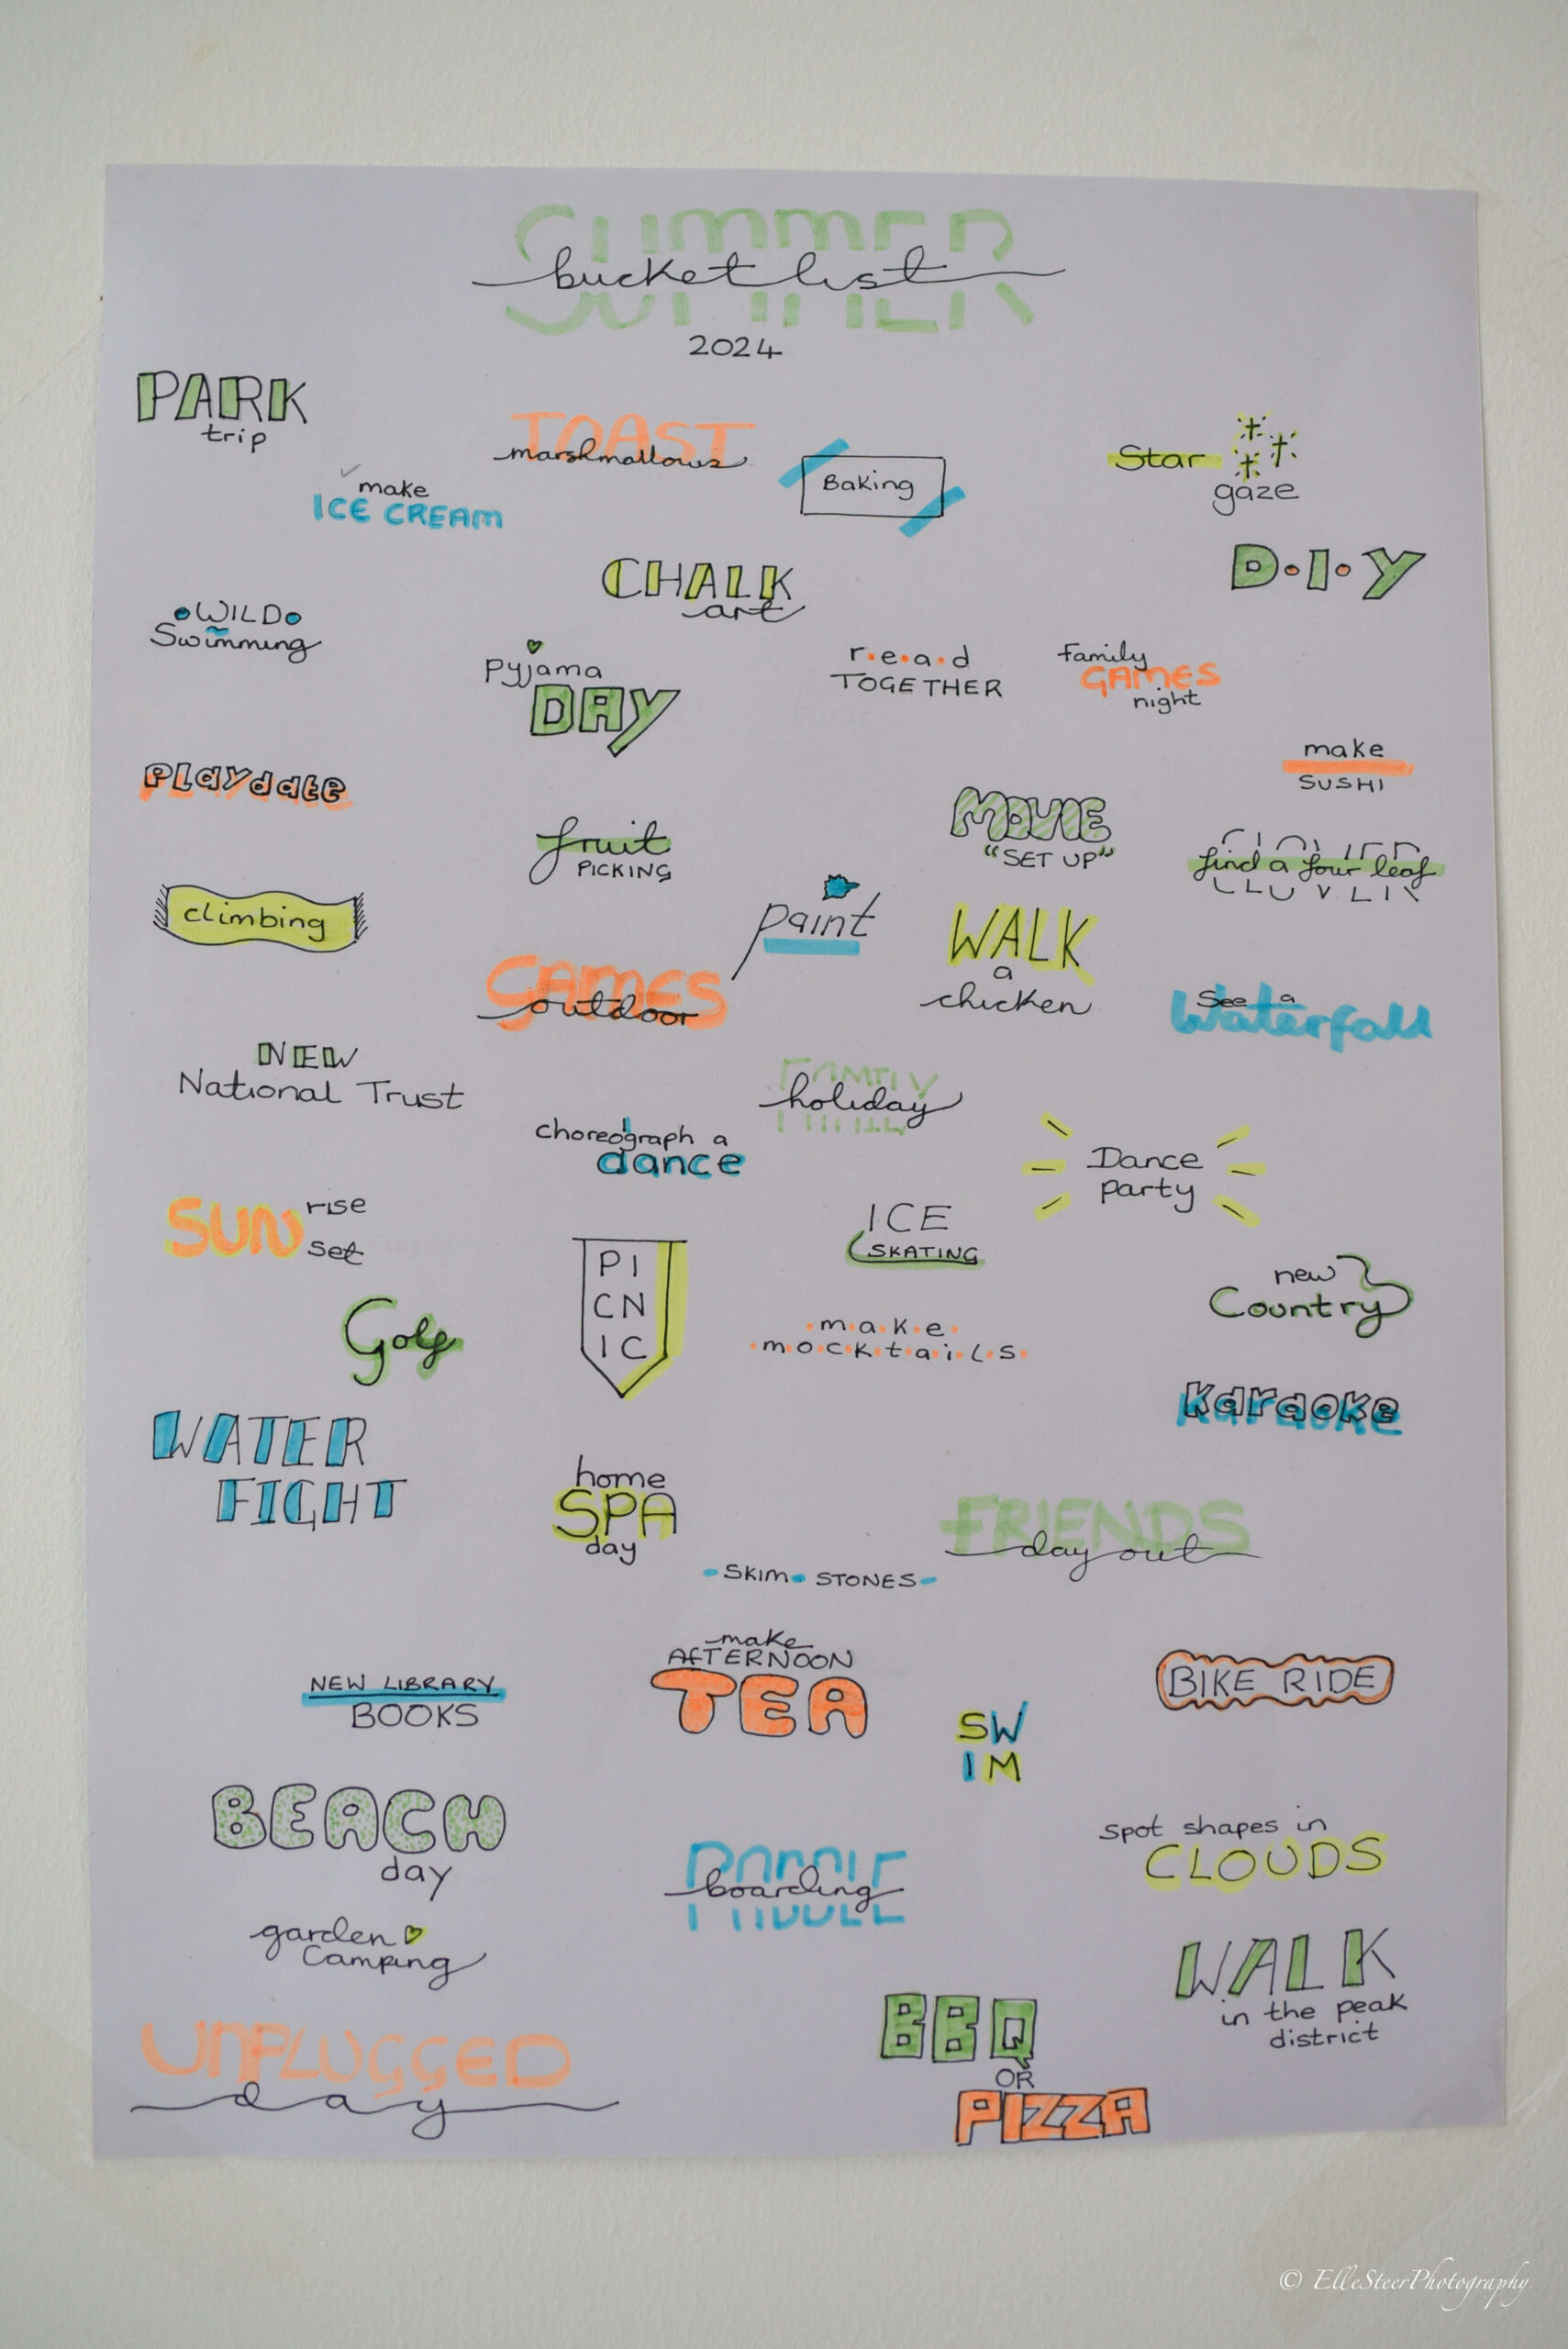 SUMMER
bucket list
2024
PARK
trip
make
ICE CREAM
TOAST
marshmallows
Baking
Star
gaze
CHALK
art
D.I.Y
WILD
Swimming
pyjama
DAY
r.e.a.d
TOGETHER
family
GAMES
night
Playdate
fruit
PICKING
MOVIE
"SET UP"
make
SUSHI
find a four leaf
CLOVER
climbing
paint
WALK
a
chicken
GAMES
outdoor
See a
Waterfall
NEW
National Trust
FAMILY
holiday
choreograph a
dance
Dance
party
SUN rise
set
PI
CN
IC
ICE
SKATING
new
Country
Golf
m.a.k.e.
m.o.c.k.t.a.i.l.s.
Karaoke
WATER
FIGHT
home
SPA
day
FRIENDS
day out
- SKIM - STONES -
NEW LIBRARY
BOOKS
make
AFTERNOON
TEA
SW
IM
BIKE RIDE
BEACH
day
PADDLE
boarding
spot shapes in
CLOUDS
garden
Camping
WALK
in the peak
district
UNPLUGGED
day
BBQ
OR
PIZZA
© ElleSteerPhotography